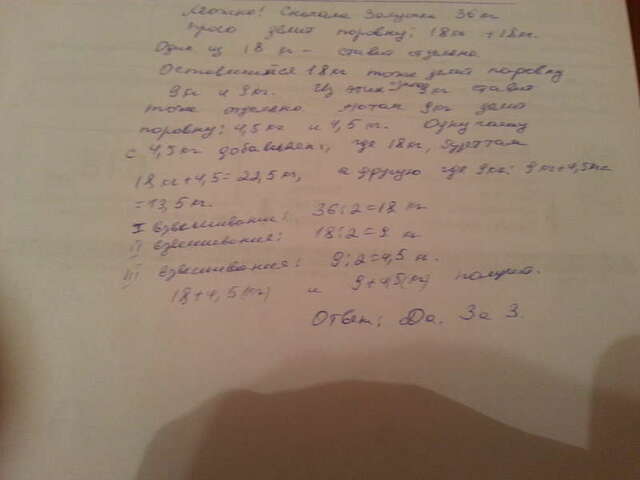 Можно! Сначала Золушка 36 кг
просо делит поровну: 18 кг + 18 кг.
Один из 18 кг - ставит отдельно.
Оставшийся 18 кг тоже делит поровну
9 кг и 9 кг. Из этих 9 кг ставит
тоже отдельно. Потом 9 кг делит
поровну: 4,5 кг и 4,5 кг. Одну чашу
с 4,5 кг добавляем, где 18 кг, будет там
18 кг + 4,5 = 22,5 кг, а другую где 9 кг: 9 кг + 4,5 кг
= 13,5 кг.
I взвешивание: 36 : 2 = 18 кг
II взвешивания: 18 : 2 = 9 кг
III взвешивания: 9 : 2 = 4,5 кг.
18 + 4,5 (кг) и 9 + 4,5 (кг) получит.
Ответ: Да. За 3.